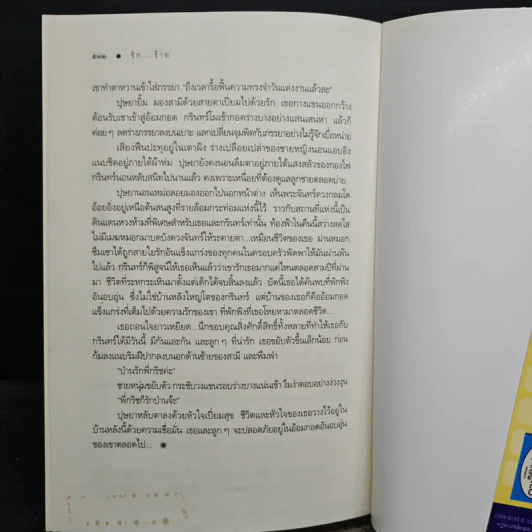 ๕๗๒ ● รัก...ร้าย
เขาทำตาหวานเข้าใส่ภรรยา "ถึงเวลารื้อฟื้นความทรงจำวันแต่งงานแล้วละ"
ปุษยายิ้ม มองสามีด้วยสายตาเปี่ยมไปด้วยรัก เธอกางแขนออกกว้าง
ต้อนรับเขาเข้าสู่อ้อมกอด กรินทร์โผเข้ากอดร่างบางอย่างแสนเสน่หา แล้วก็
ค่อยๆ ลดร่างภรรยาลงบนเบาะ แลกเปลี่ยนจุมพิตกับภรรยาอย่างไม่รู้จักเบื่อหน่าย
เสียงฟืนปะทุอยู่ในเตาผิง ร่างเปลือยเปล่าของชายหญิงนอนแอบอิง
แนบชิดอยู่ภายใต้ผ้าห่ม ปุษยายังคงนอนลืมตาอยู่ภายใต้แสงสลัวของกองไฟ
กรินทร์นอนหลับสนิทไปนานแล้ว คงเพราะเหนื่อยที่ต้องดูแลลูกชายตลอดบ่าย
ปุษยานอนเหม่อลอยมองออกไปนอกหน้าต่าง เห็นพระจันทร์ดวงกลมโต
อ้อยอิ่งอยู่เหนือต้นสนสูงที่รายล้อมกระท่อมแห่งนี้ไว้ ราวกับสถานที่แห่งนี้เป็น
ดินแดนหวงห้ามที่พิเศษสำหรับเธอและกรินทร์เท่านั้น ท้องฟ้าในคืนนี้สว่างสดใส
ไม่มีเมฆหมอกมาบดบังดวงจันทร์ให้ระคายตา...เหมือนชีวิตของเธอ ม่านหมอก
ซึมเซาได้ถูกสายใยรักอันแข็งแกร่งของทุกคนในครอบครัวพัดพาให้มันผ่านพ้น
ไปแล้ว กรินทร์ก็พิสูจน์ให้เธอเห็นแล้วว่าเขารักเธอมากแค่ไหนตลอดสามปีที่ผ่าน
มา ชีวิตที่ระหกระเหินมาตั้งแต่เด็กได้จบสิ้นลงแล้ว บัดนี้เธอได้ค้นพบที่พักพิง
อันอบอุ่น ซึ่งไม่ใช่บ้านหลังใหญ่โตของกรินทร์ แต่บ้านของเธอก็คืออ้อมกอด
แข็งแกร่งที่เต็มไปด้วยความรักของเขา ที่พักพิงที่เธอโหยหามาตลอดชีวิต...
เธอถอนใจยาวเหยียด...นึกขอบคุณสิ่งศักดิ์สิทธิ์ทั้งหลายที่ทำให้เธอกับ
กรินทร์ได้มีวันนี้ มีกันและกัน และลูกๆ ที่น่ารัก เธอขยับตัวขึ้นเล็กน้อย ก่อน
ก้มลงแนบริมฝีปากลงบนอกด้านซ้ายของสามี และพึมพำ
"ป่านรักพี่กริชค่ะ"
ชายหนุ่มขยับตัว กระชับวงแขนรอบร่างบางแน่นเข้า งึมงำตอบอย่างง่วงงุน
"พี่กริชก็รักป่านจ้ะ"
ปุษยาหลับตาลงด้วยหัวใจเปี่ยมสุข ชีวิตและหัวใจของเธอวางไว้อยู่ใน
บ้านหลังนี้ด้วยความเชื่อมั่น เธอและลูกๆ จะปลอดภัยอยู่ในอ้อมกอดอันอบอุ่น
ของเขาตลอดไป... ◉